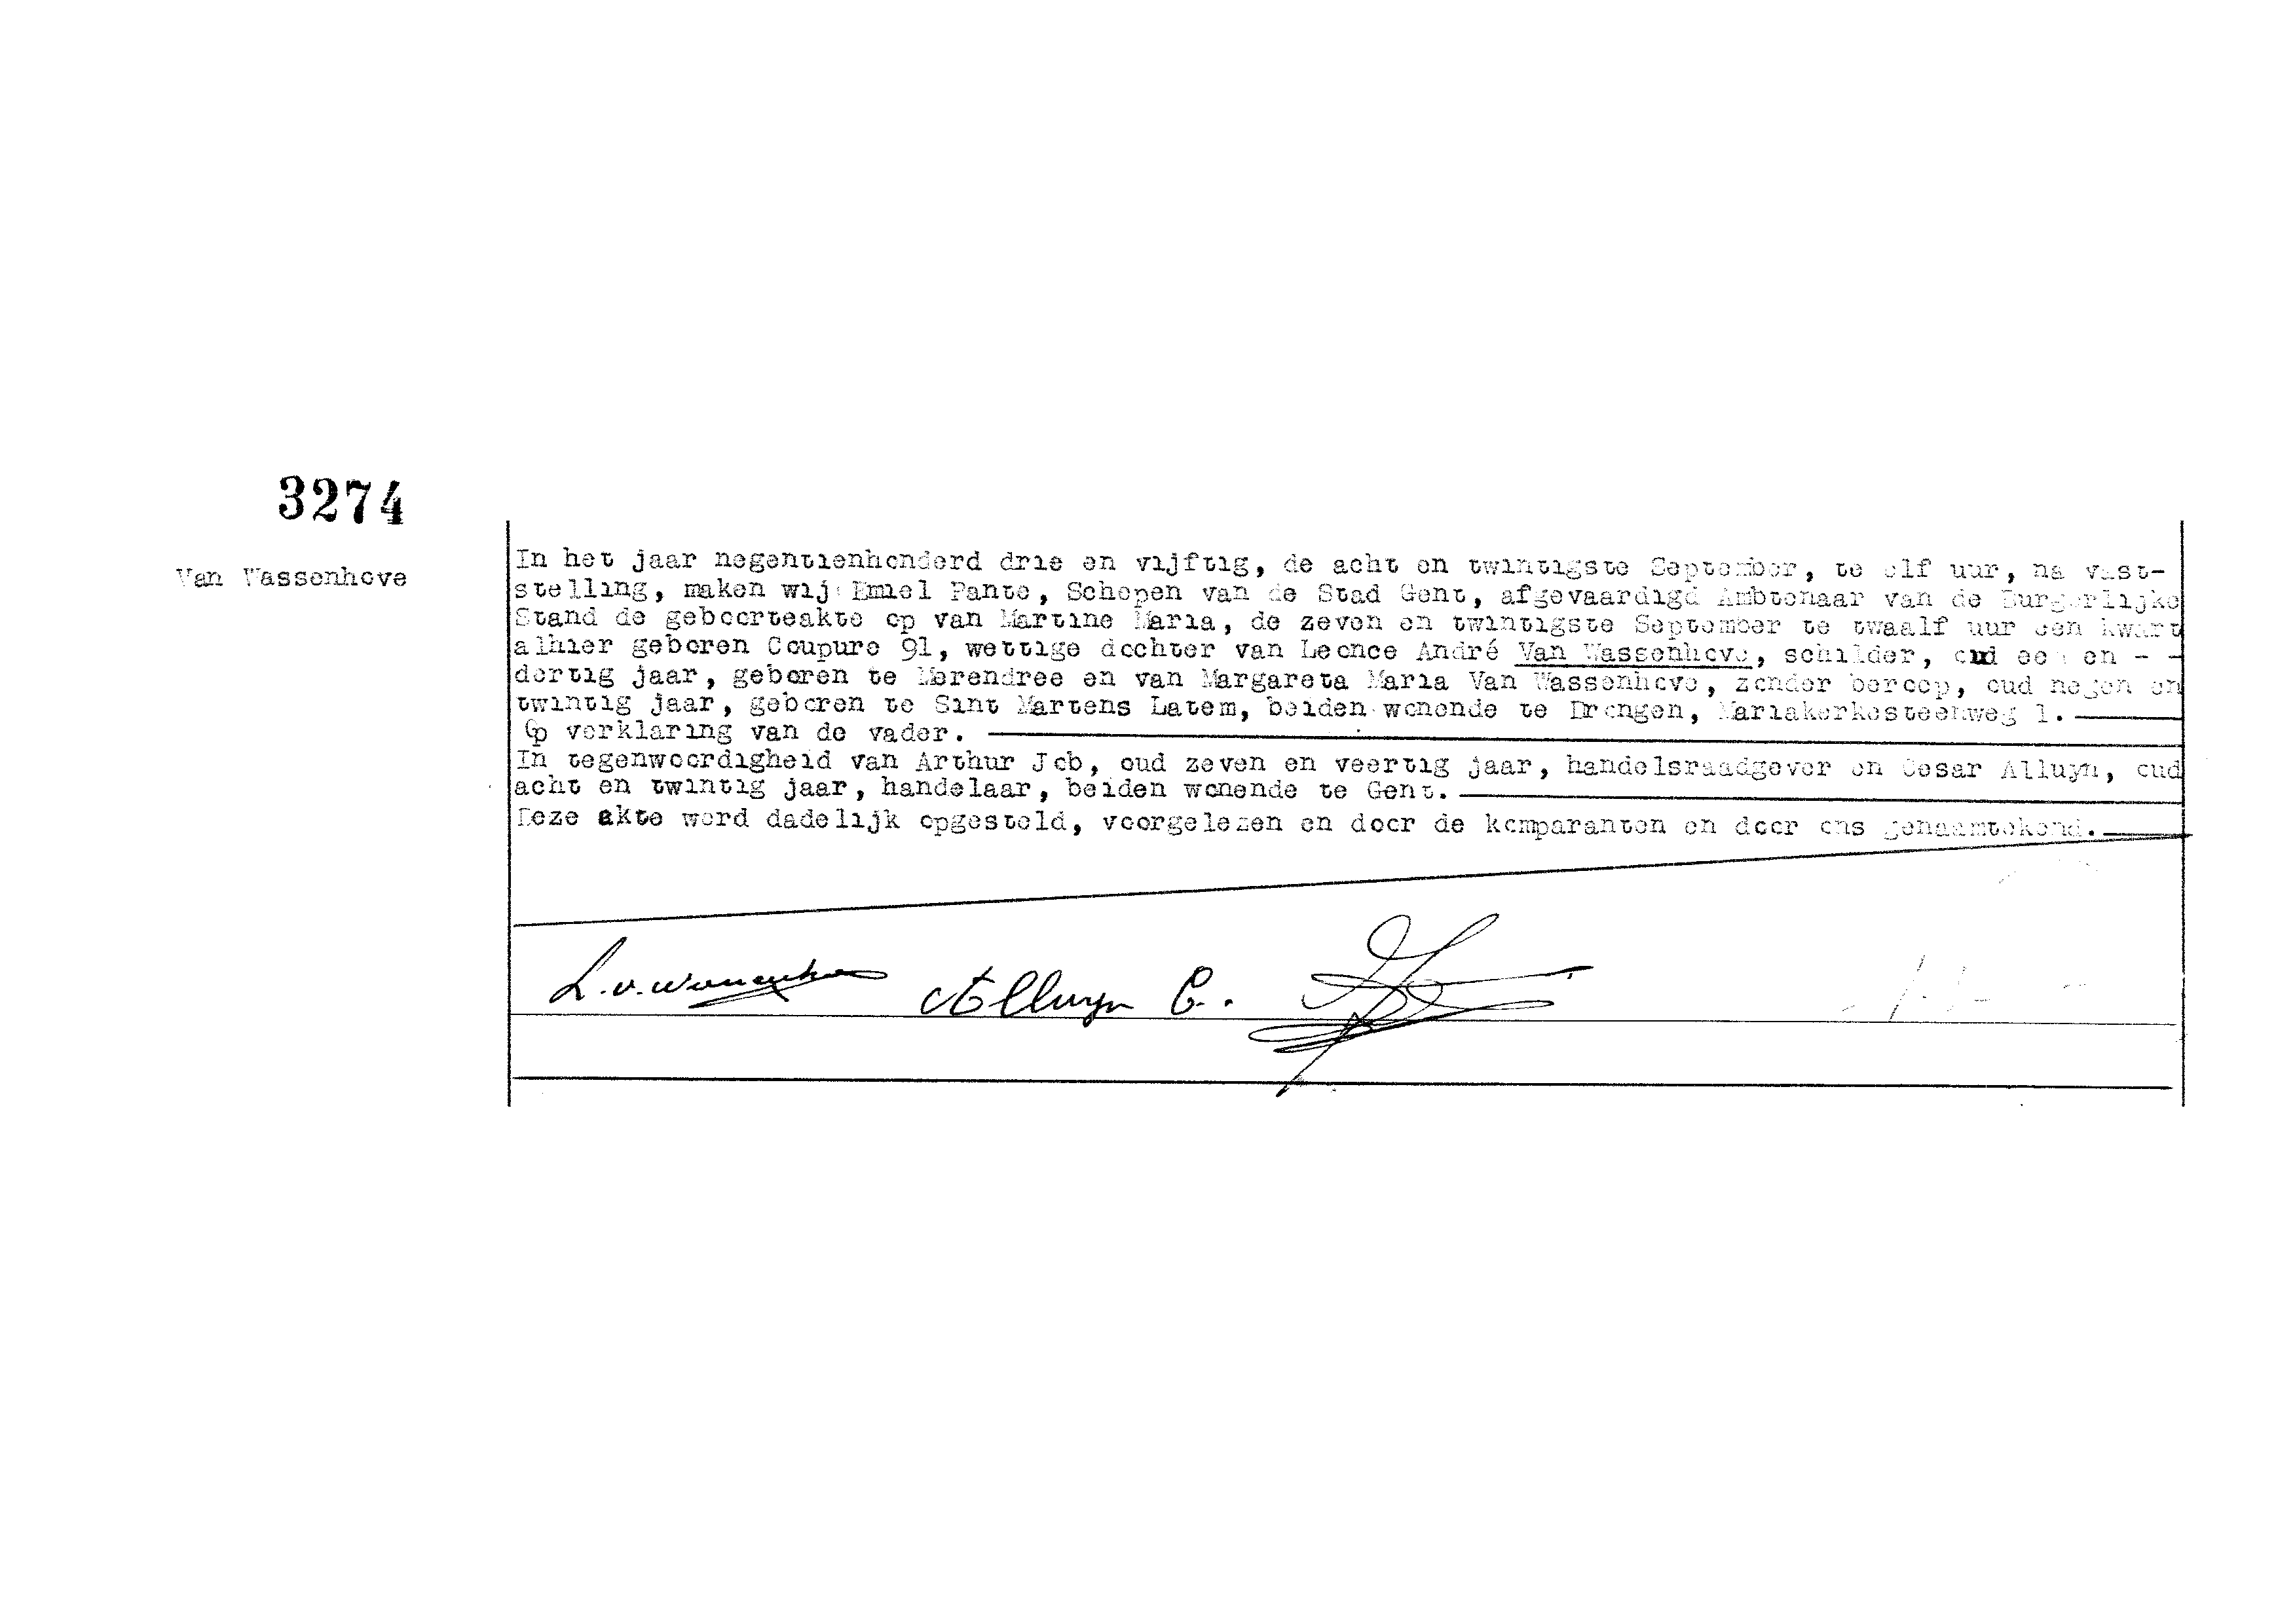 3274
Van Wassenhove
In het jaar negentienhonderd drie en vijftig, de acht en twintigste September, te elf uur, na vast-
stelling, maken wij Emiel Pante, Schepen van de Stad Gent, afgevaardigd Ambtenaar van de Burgerlijke
Stand de geboorteakte op van Martine Maria, de zeven en twintigste September te twaalf uur een kwart
alhier geboren Coupure 91, wettige dochter van Leonce André Van Wassenhove, schilder, oud een en - -
dertig jaar, geboren te Merendree en van Margareta Maria Van Wassenhove, zonder beroep, oud negen en
twintig jaar, geboren te Sint Martens Latem, beiden wonende te Drongen, Mariakerkesteenweg 1.
Op verklaring van de vader.
In tegenwoordigheid van Arthur Job, oud zeven en veertig jaar, handelsraadgever en Cesar Alluyn, oud
acht en twintig jaar, handelaar, beiden wonende te Gent.
Deze akte werd dadelijk opgesteld, voorgelezen en door de komparanten en door ons genaamtekend.
L.v.Wassenhove Alluyn C.